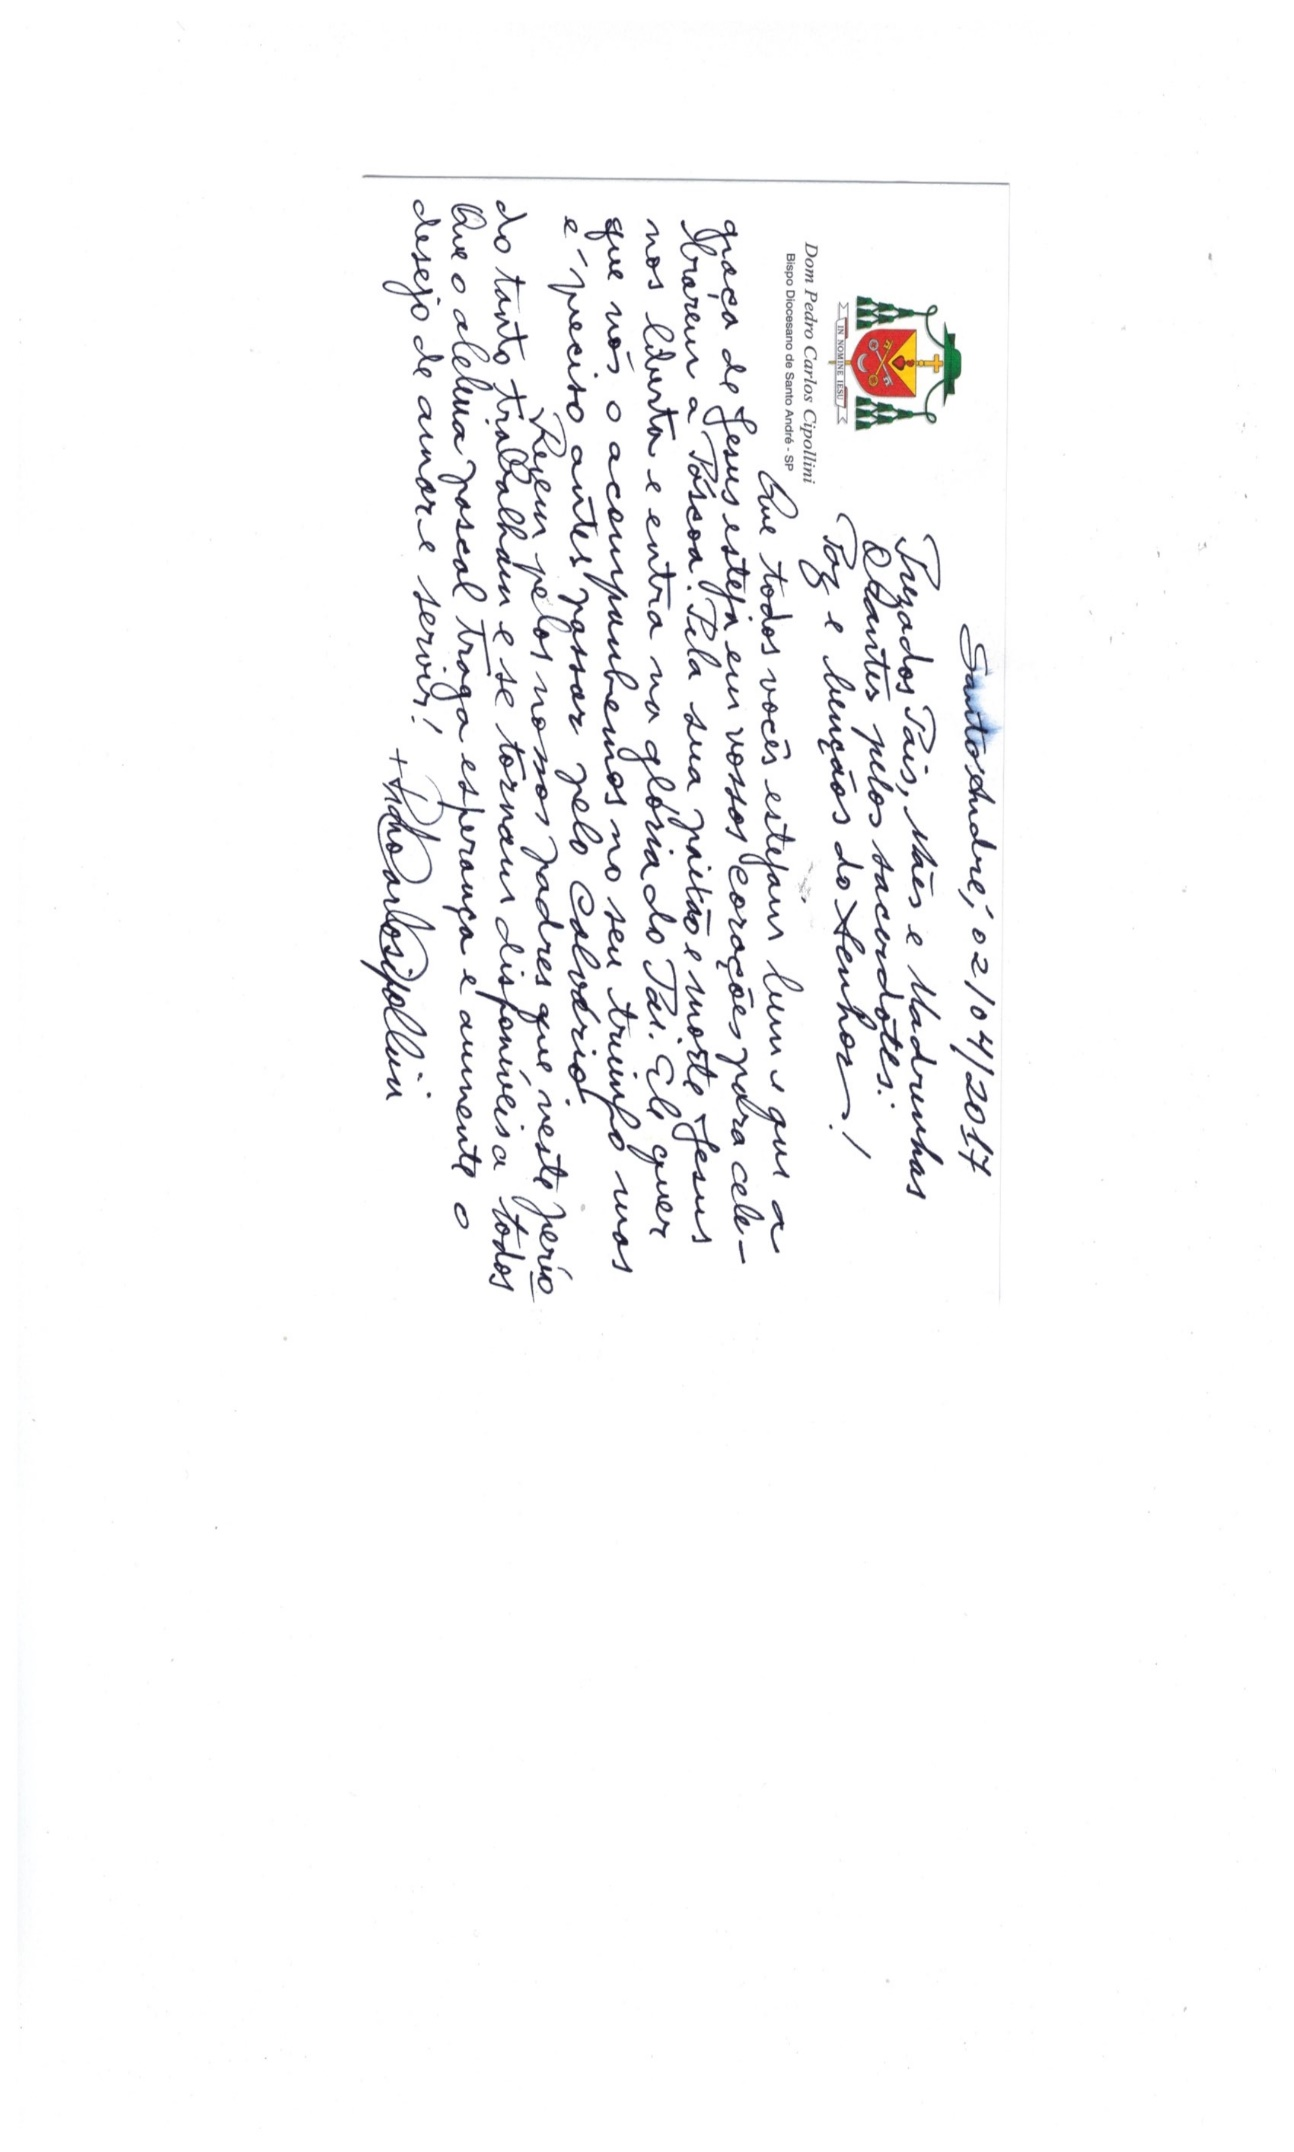 Santo André, 02/04/2017
IN NOMINE IESU
Dom Pedro Carlos Cipollini
Bispo Diocesano de Santo André - SP
Prezados Pais, Mães e Madrinhas
Orantes pelos sacerdotes:
Paz e bençãos do Senhor!
Que todos vocês estejam bem e que a
graça de Jesus esteja em vossos corações para cele-
brarem a Páscoa. Pela sua paixão e morte Jesus
nos liberta e entra na glória do Pai. Ele quer
que nós o acompanhemos no seu triunfo mas
é preciso antes passar pelo calvário.
Rezem pelos nossos padres que neste perío
do tanto trabalham e se tornam disponíveis a todos
Que o aleluia pascal traga esperança e aumente o
desejo de amar e servir!
+ Pedro Carlos Cipollini